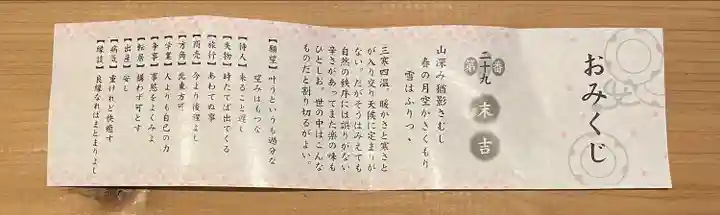 おみくじ
第二十九番
末吉
山深み猶影さむし
春の月空かきくもり
雪はふりつゝ
三寒四温。暖かさと寒さと
が入り交り天候に定まりが
ない。だがそうはみえても
自然の秩序には誤りがない
辛さがあってまた楽の味も
ひとしお。世の中はこんな
ものだと割り切るがよい。
【願望】叶うというも過分な
望みはもつな
【待人】来ること遅し
【失物】時たてば出てくる
【旅行】あわてぬ事
【商売】今より後程よし
【方角】北東方可
【学業】人よりも自己の力
【争事】事態をよくみよ
【転居】構わず可とす
【出産】安し
【病気】重けれど快癒す
【縁談】良縁なればまとまりよし